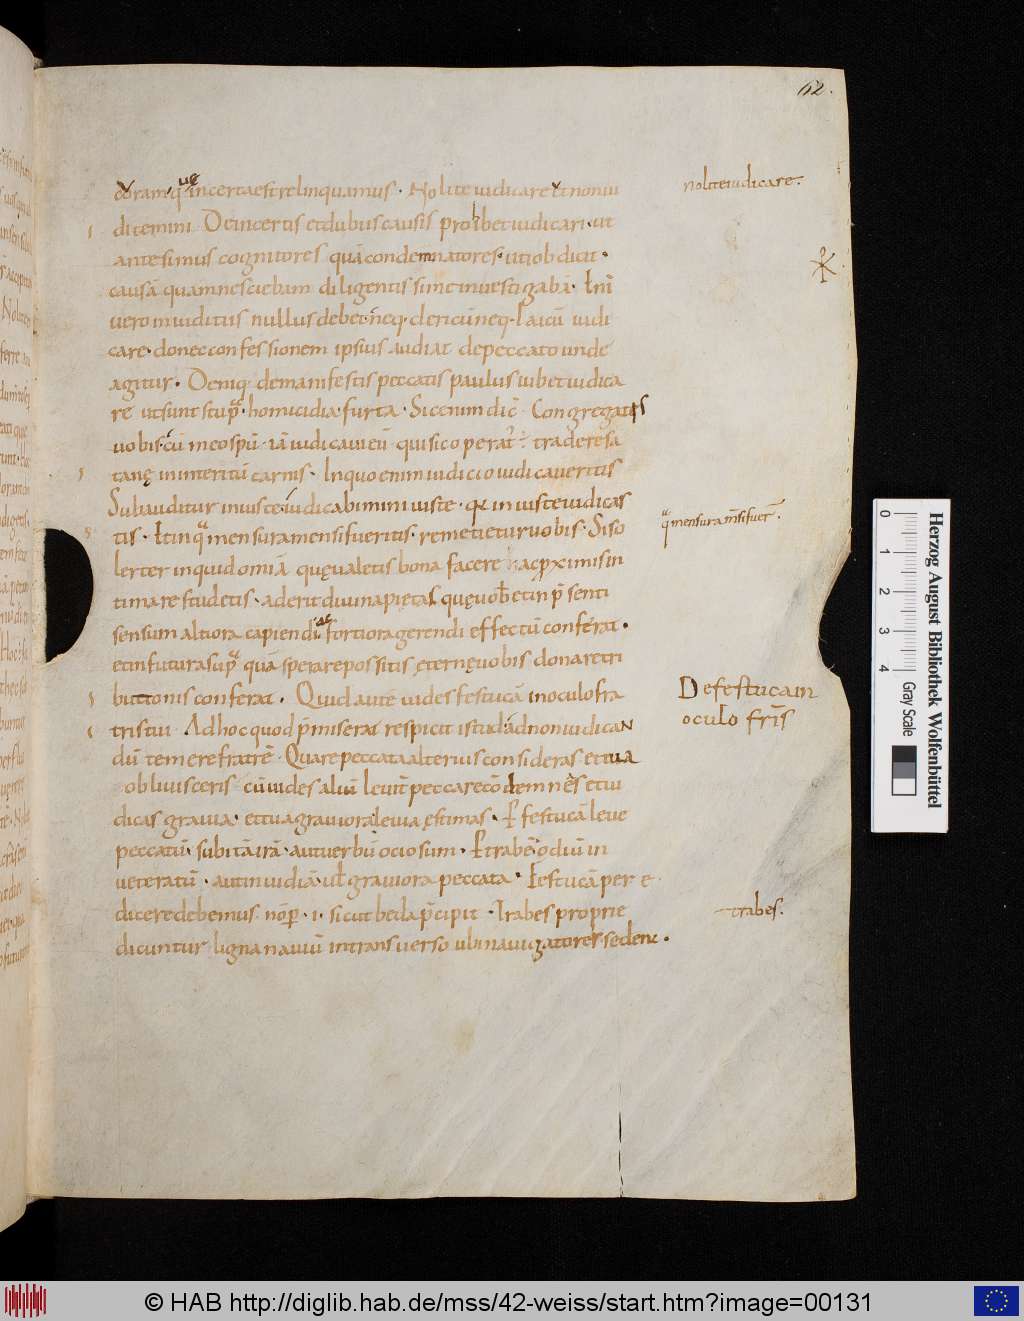 62.
eorumq' quę incerta est relinquamus · Nolite iudicare et non iu
dicemini · De incertis et dubiis causis prohibet iudicari · ut
ante simus cognitores quā condemnatores · uti iob dicit ·
causā quam nesciebam diligentissime inuestigabā ·
uero inuiditus nullus debet · neq· clericū neq· laicū iudi
care · donec confessionem ipsius audiat de peccato unde
agitur · Deniq· de manifestis peccatis paulus iubet iudica
re ut sunt stupra · homicidia · furta · Sic enim dic̄ · Congregatis
uobiscū meo spū · iā iudicaui eū · qui sic operat᷒ · tradere sa
tanę in interitū carnis · In quo enim iudicio iudicaueritis
Subauditur iniuste · iudicabimini iuste · quia iniuste iudicas
tis · Et in qua mensura mensi fueritis · remetietur uobis · Si so
lerter inquid omiā quę ualetis bona facere ac p̄ximis in
timare studetis · aderit diuina pietas quę uob̄ et in p̄senti
sensum altiora capiendi ac fortiora gerendi effectū conferat ·
et in futura supra quā sperare possitis ęterne uobis dona retri
butionis conferat · Quid autē uides festucā in oculo fra
tris tui · Ad hoc quod p̄miserat respicit istud ad non iudican
dū temere fratrē · Quare peccata alterius consideras et tua
obliuisceris cū uides aliū leuit᷒ peccare cōdemnes et iu
dicas grauia · et tua grauiora leuia ęstimas · P festucā leue
peccatū · subitā irā · aut uerbū ociosum · P trabē odiū in
ueteratū · aut inuidiā · uł grauiora peccata · Festucā per e
dicere debemus · nōp · i · sicut beda p̄cipit · Trabes proprie
dicuntur ligna nauiū in transuerso ubi nauigatores sedent ·
nolite iudicare ·
qa mensura mensi fuer̄ ·
De festuca in
oculo fr̄is
trabes ·
0 1 2 3 4
Gray Scale
Herzog August Bibliothek Wolfenbüttel
© HAB http://diglib.hab.de/mss/42-weiss/start.htm?image=00131